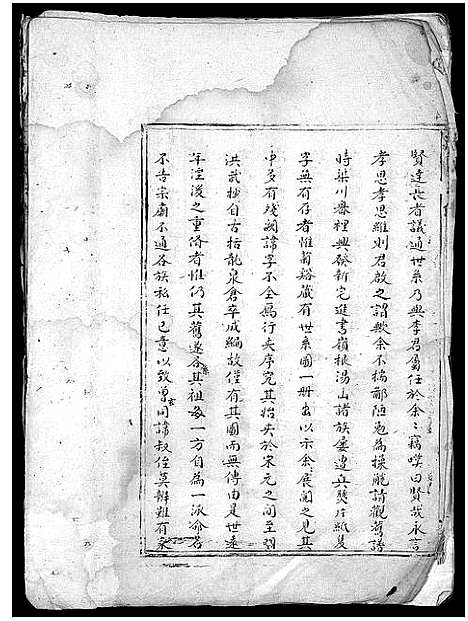 賢達長者議通世系乃與李君屬任於余余竊嘆曰賢哉永言
孝思孝思維則君啟之謂歟余不揣鄙陋勉為操觚請觀舊譜
時桀川舉裡與發新宅進書嶺根湯山諸族屢遭兵燹片紙隻
字無有存者惟葡谿藏有世系圖一冊出以示余余展閱之見其
中多有殘闕諱字不全焉行失序究其始失於宋元之间至習
洪武極自古括龍泉倉卒成編故僅有其圖而無傳由是世遠
年湮後之重脩者惟仍其舊遂各其祖每一方自為一派命名
不告宗廟不通各族私任已意以致曾玄同諱叔侄莫辨難有家